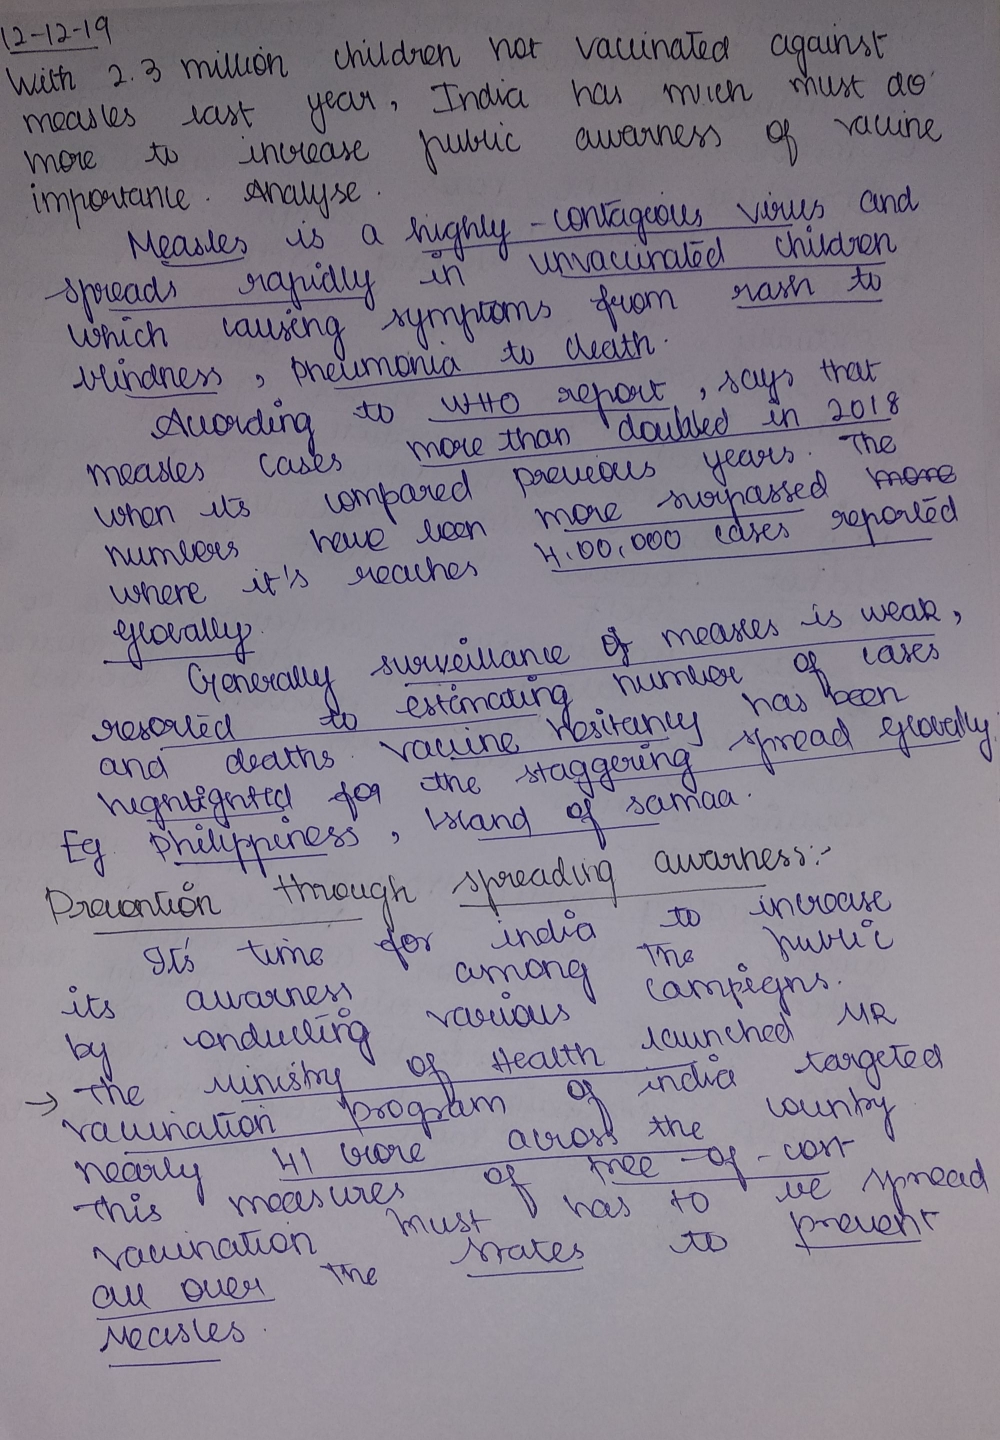 12-12-19
With 2.3 million children not vaccinated against
measles last year, India has much must do
more to increase public awarness of vaccine
importance. Analyse.
Measles is a highly-contageous virus and
spreads rapidly in unvaccinated children
which causing symptoms from rash to
blindness, pneumonia to death.
According to WHO report, says that
measles cases more than doubled in 2018
when its compared previous years. The
numbers have been more surpassed more
where it's reaches 4,00,000 cases reported
globally.
Generally surveillance of measles is weak,
resorted to estimating number of cases
and deaths. Vaccine hesitancy has been
highlighted for the staggering spread globally.
Eg. Philippiness, Island of samaa.
Prevention through spreading awarness:-
It's time for india to increase
its awarness among the public
by conducting various campeigns.
→ The Ministry of Health launched MR
vaccination program of india targeted
nearly 41 crore across the country
This measures of free-of-cost
vaccination must has to be spread
all over the states to prevent
Measles.